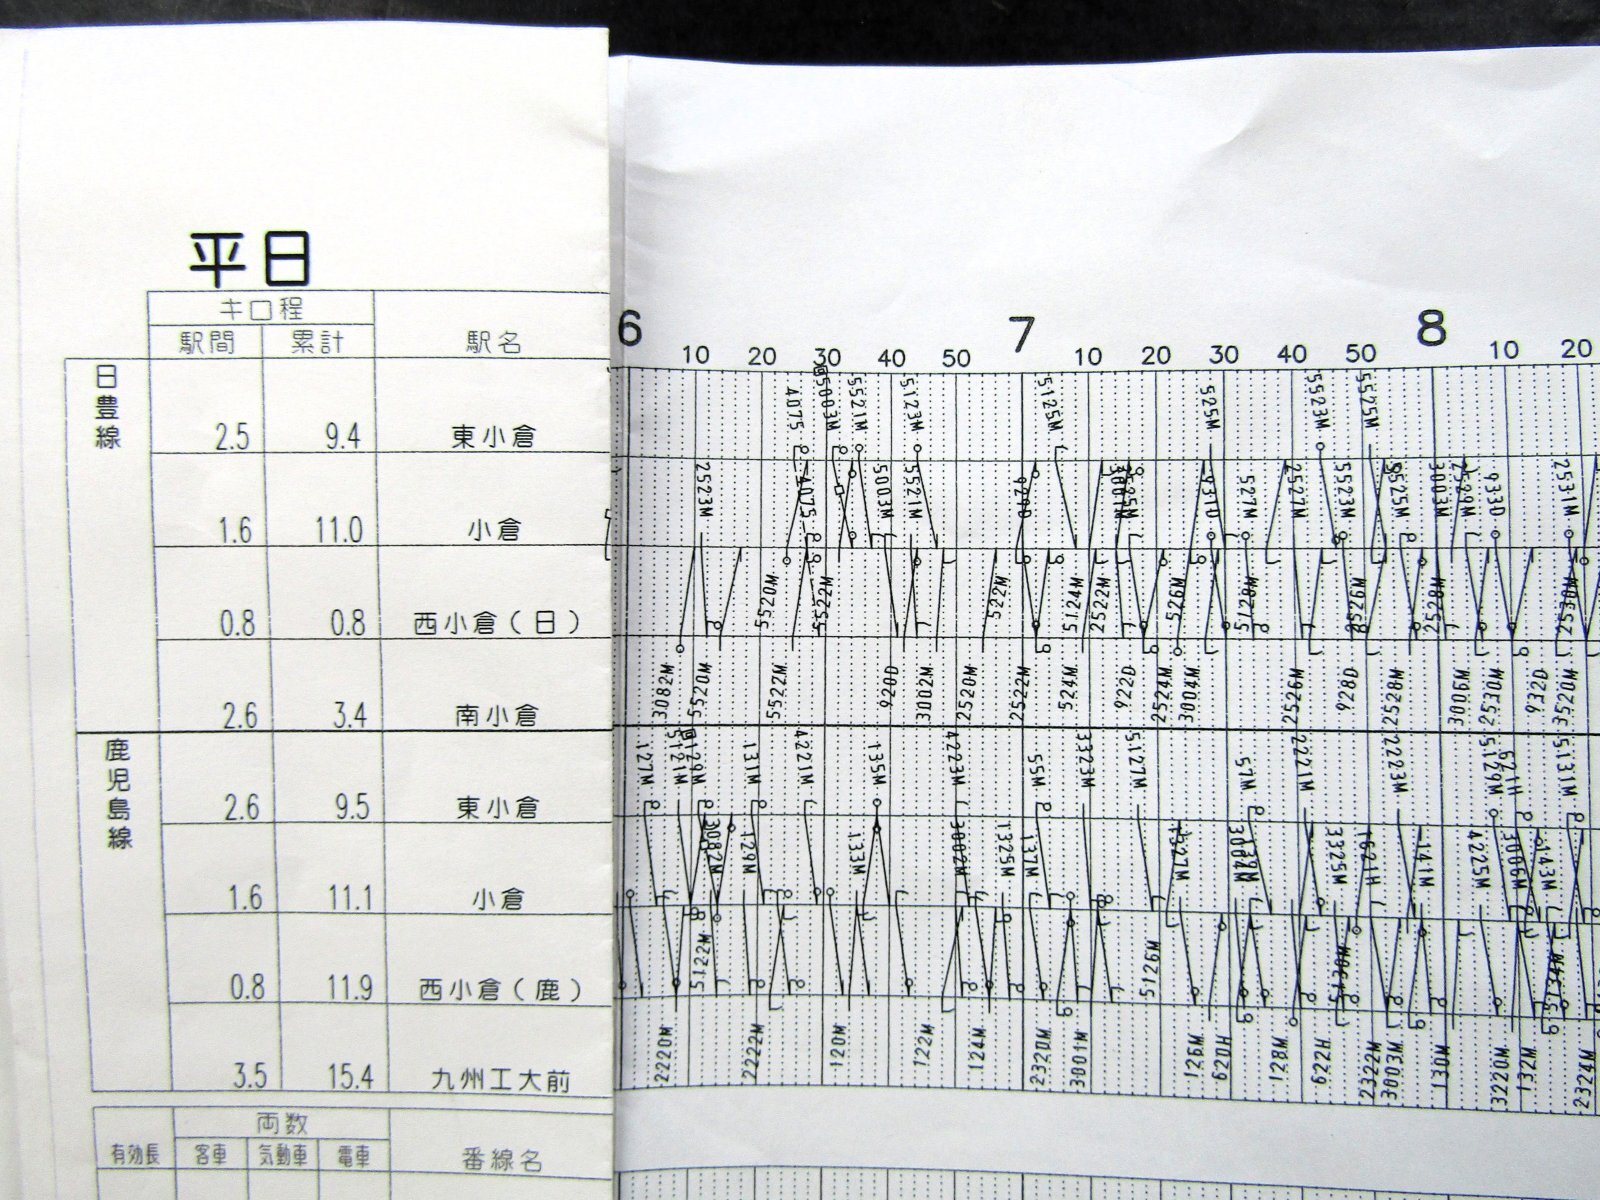 平日
キロ程
駅間 累計 駅名
6 7 8
10 20 30 40 50 10 20 30 40 50 10 20
日豊線
2.5 9.4 東小倉
1.6 11.0 小倉
0.8 0.8 西小倉(日)
2.6 3.4 南小倉
鹿児島線
2.6 9.5 東小倉
1.6 11.1 小倉
0.8 11.9 西小倉(鹿)
3.5 15.4 九州工大前
両数
有効長 客車 気動車 電車 番線名
4075 5003M 5521M 5123M 5125M 525M 5523M 5525M
2523M 4075 5003M 5521M 929D 931D 527M 2527M 5523M 5525M 3003M 2529M 933D 2531M
5520M 5522M 522M 5124M 2522M 526M 5128M 2526M 2528M 2530M
3082M 5520M 5522M 920D 3002M 2520M 2522M 524M 922D 2524M 3004M 2526M 928D 2528M 3006M 2530M 932D
127M 5121M 5129M 131M 4221M 135M 4223M 55M 3323M 5127M 57M 2221M 2223M 5129M 621H 5131M
3082M 129M 133M 3002M 1325M 137M 1327M 3004M 139M 3325M 1621H 141M 4225M 3006M 143M
5122M 5126M
2220M 2222M 120M 122M 124M 2320M 3001M 126M 620H 128M 622H 2322M 3003M 130M 3220M 132M 2324M